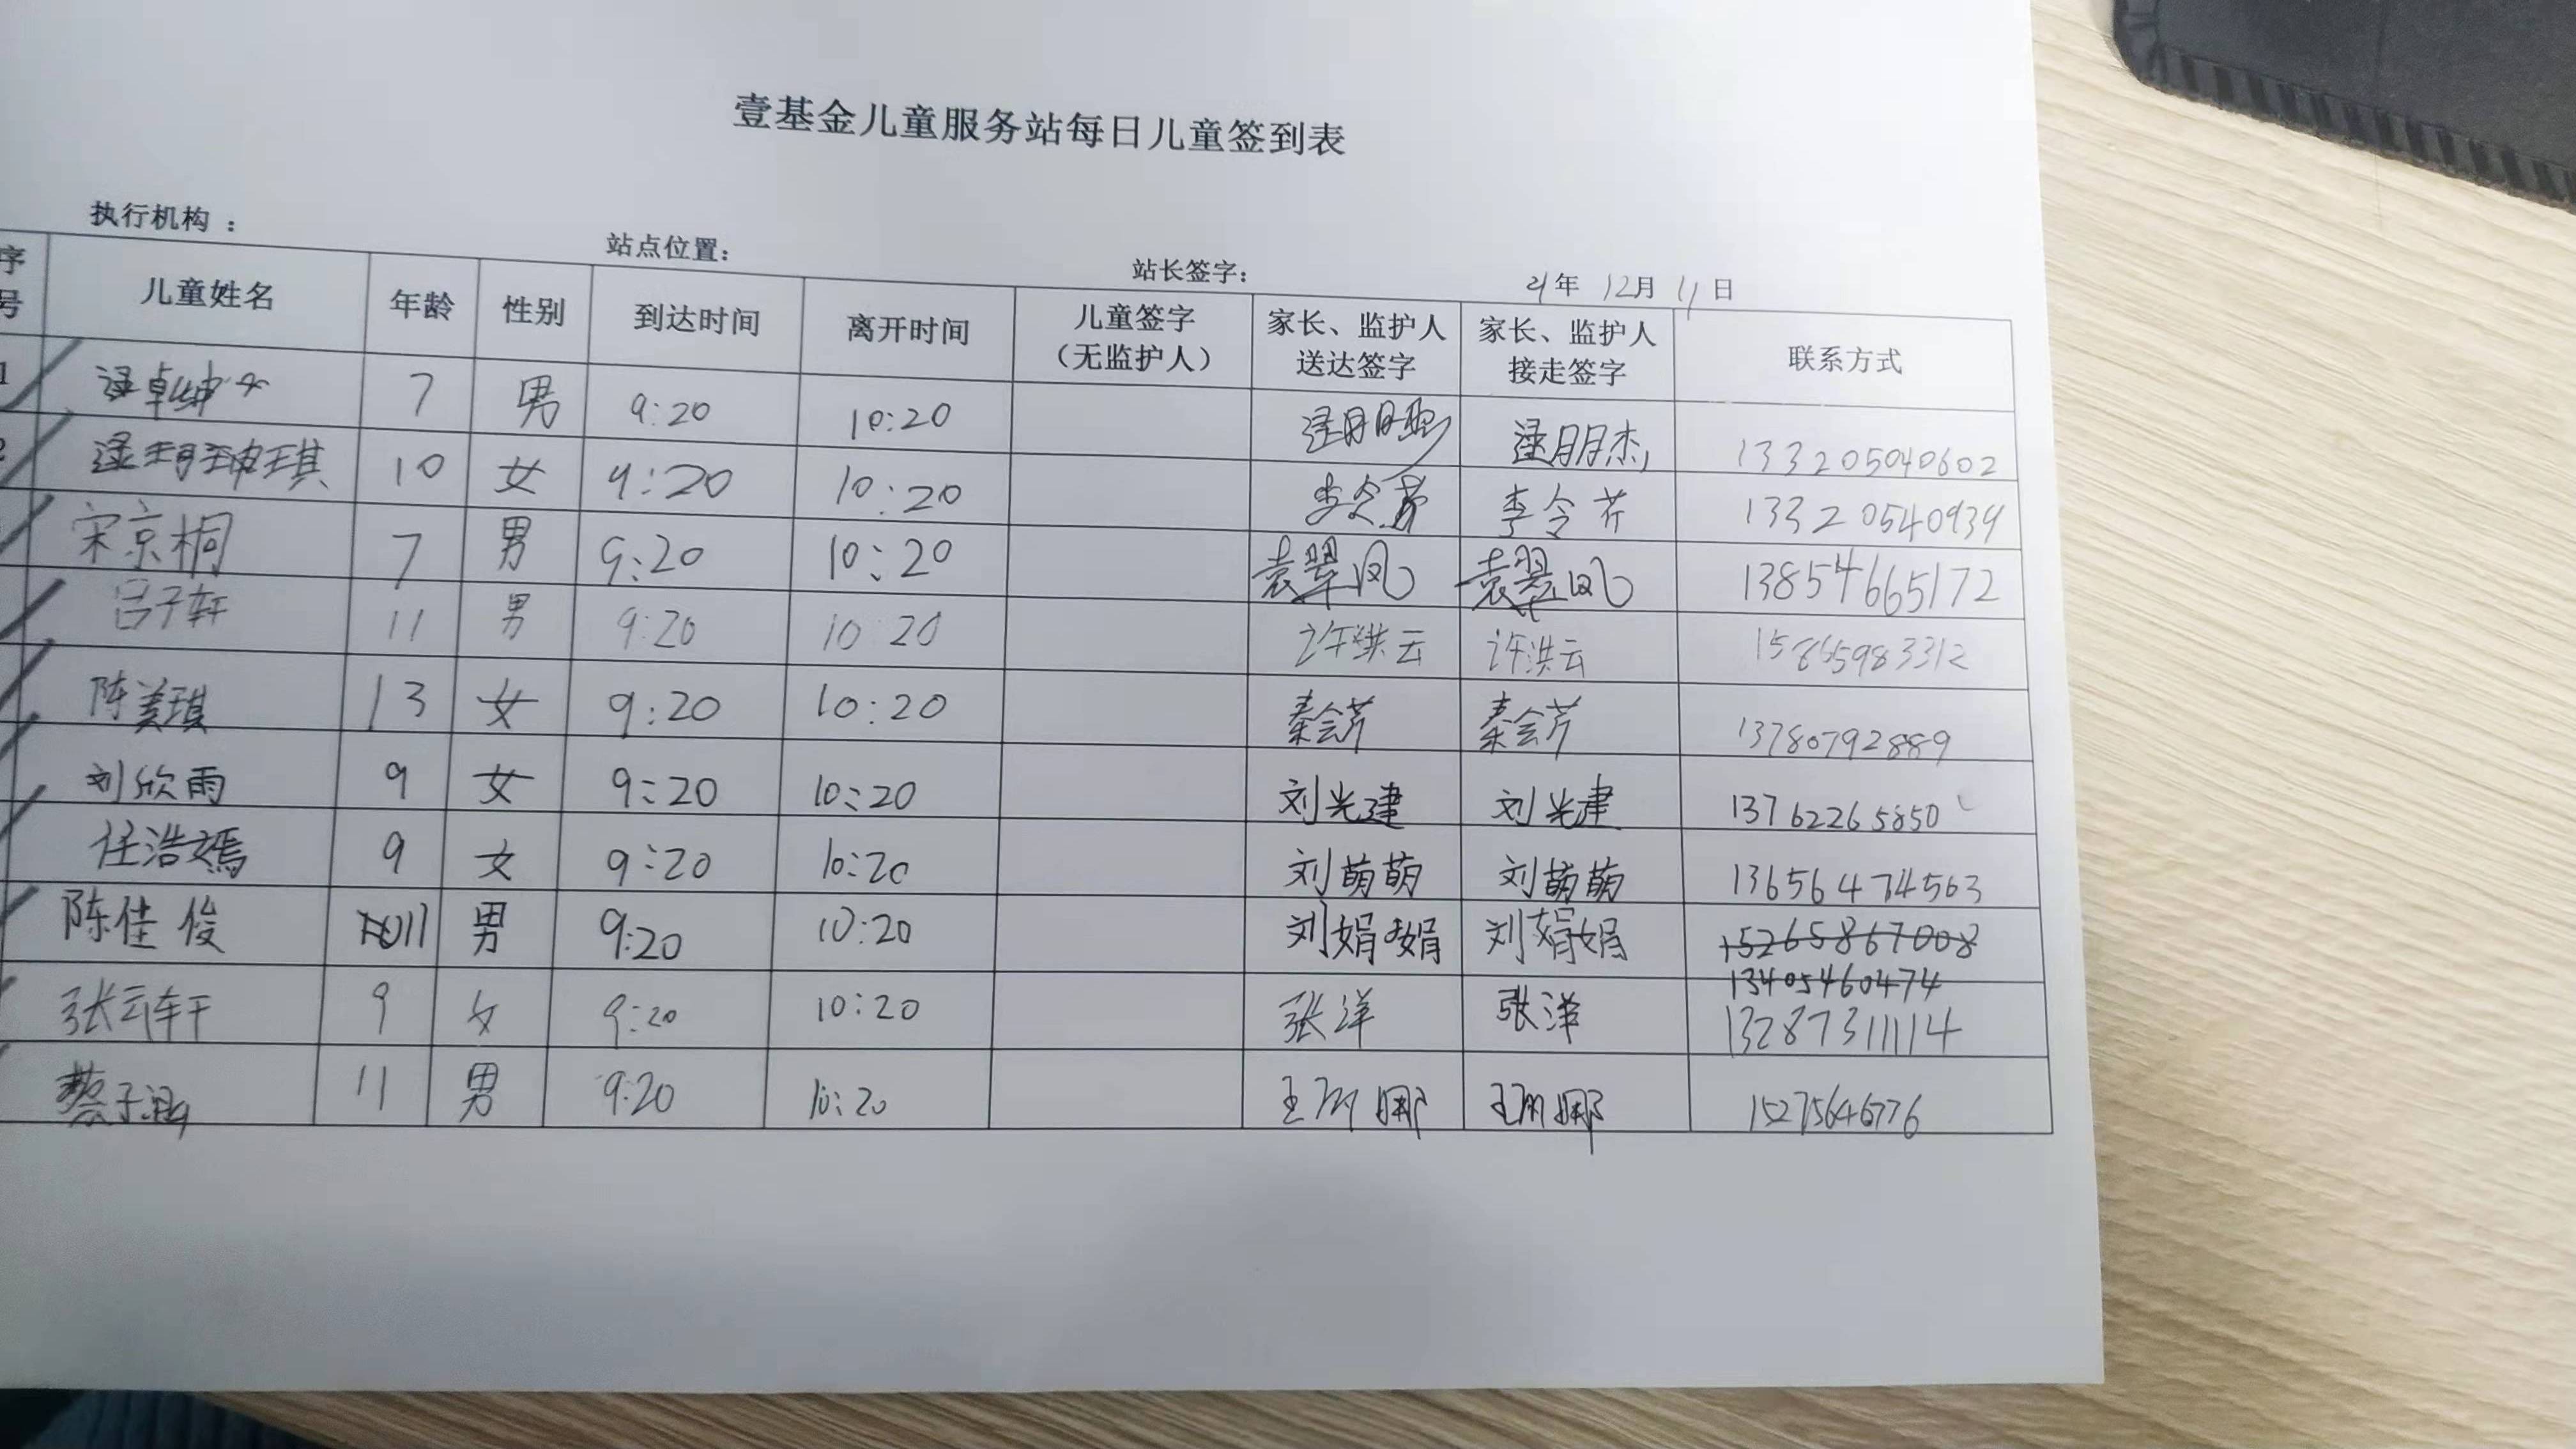 壹基金儿童服务站每日儿童签到表
执行机构： 站点位置： 站长签字： 21年 12月 11日
序号 儿童姓名 年龄 性别 到达时间 离开时间 儿童签字（无监护人） 家长、监护人送达签字 家长、监护人接走签字 联系方式
1 7 男 9:20 10:20 逯明杰 133205040602
2 10 女 9:20 10:20 李令芹 13320540939
宋京桐 7 男 9:20 10:20 袁翠凤 袁翠凤 13854665172
吕子轩 11 男 9:20 10:20 许洪云 许洪云 15865983312
陈美琪 13 女 9:20 10:20 秦会芹 秦会芹 13780792889
刘欣雨 9 女 9:20 10:20 刘光建 刘光建 13762265850
任浩嫣 9 女 9:20 10:20 刘萌萌 刘萌萌 13656474563
陈佳俊 11 男 9:20 10:20 刘娟娟 刘娟娟 15265867008
13405460474
张云轩 9 女 9:20 10:20 张洋 张洋 13287311114
蔡子涵 11 男 9:20 10:20 王丽娜 王丽娜 15275646776